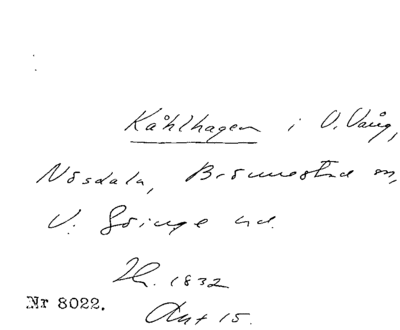 Kåhlhagen i V. Vång,
Nösdala, Brönnestad sn,
V. Göinge hd.
1832
Nr 8022.
Ant 15.